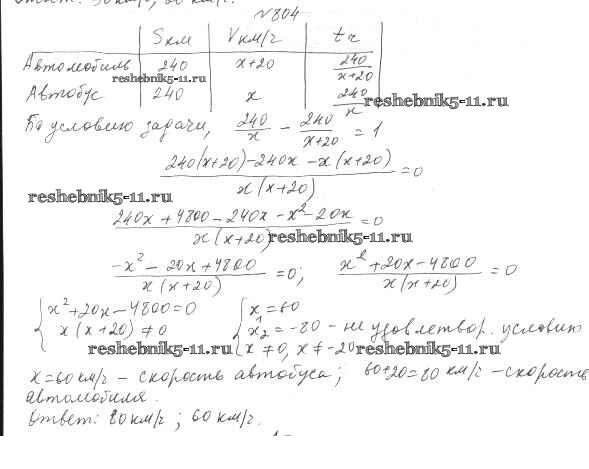 Ответ: 50 км/г, 60 км/г.
№804
S км | V км/г | t г
Автомобиль 240 | x+20 | 240/(x+20)
reshebnik5-11.ru
Автобус 240 | x | 240/x
reshebnik5-11.ru
По условию задачи, 240/x − 240/(x+20) = 1
(240(x+20)−240x −x(x+20))/(x(x+20)) =0
reshebnik5-11.ru
(240x+4800−240x−x²−20x)/(x(x+20)) =0
reshebnik5-11.ru
(−x²−20x+4800)/(x(x+20)) =0; (x²+20x−4800)/(x(x+20)) =0
{x²+20x−4800=0 {x₁=60
x(x+20)≠0 x₂=−80 – не удовлетвор. условию
x≠0, x≠−20
reshebnik5-11.ru reshebnik5-11.ru
x=60 км/г – скорость автобуса; 60+20=80 км/г – скорость
автомобиля.
Ответ: 80 км/г; 60 км/г.